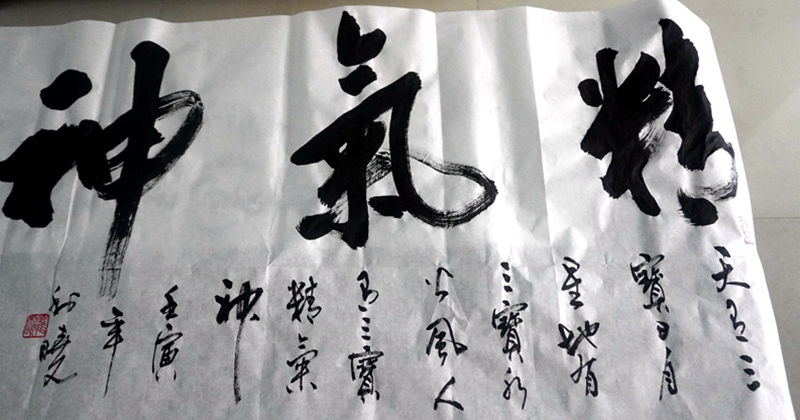 精氣神
天有三
寶日月
星地有
三寶水
火風人
有三寶
精氣
神
壬寅
年
曉